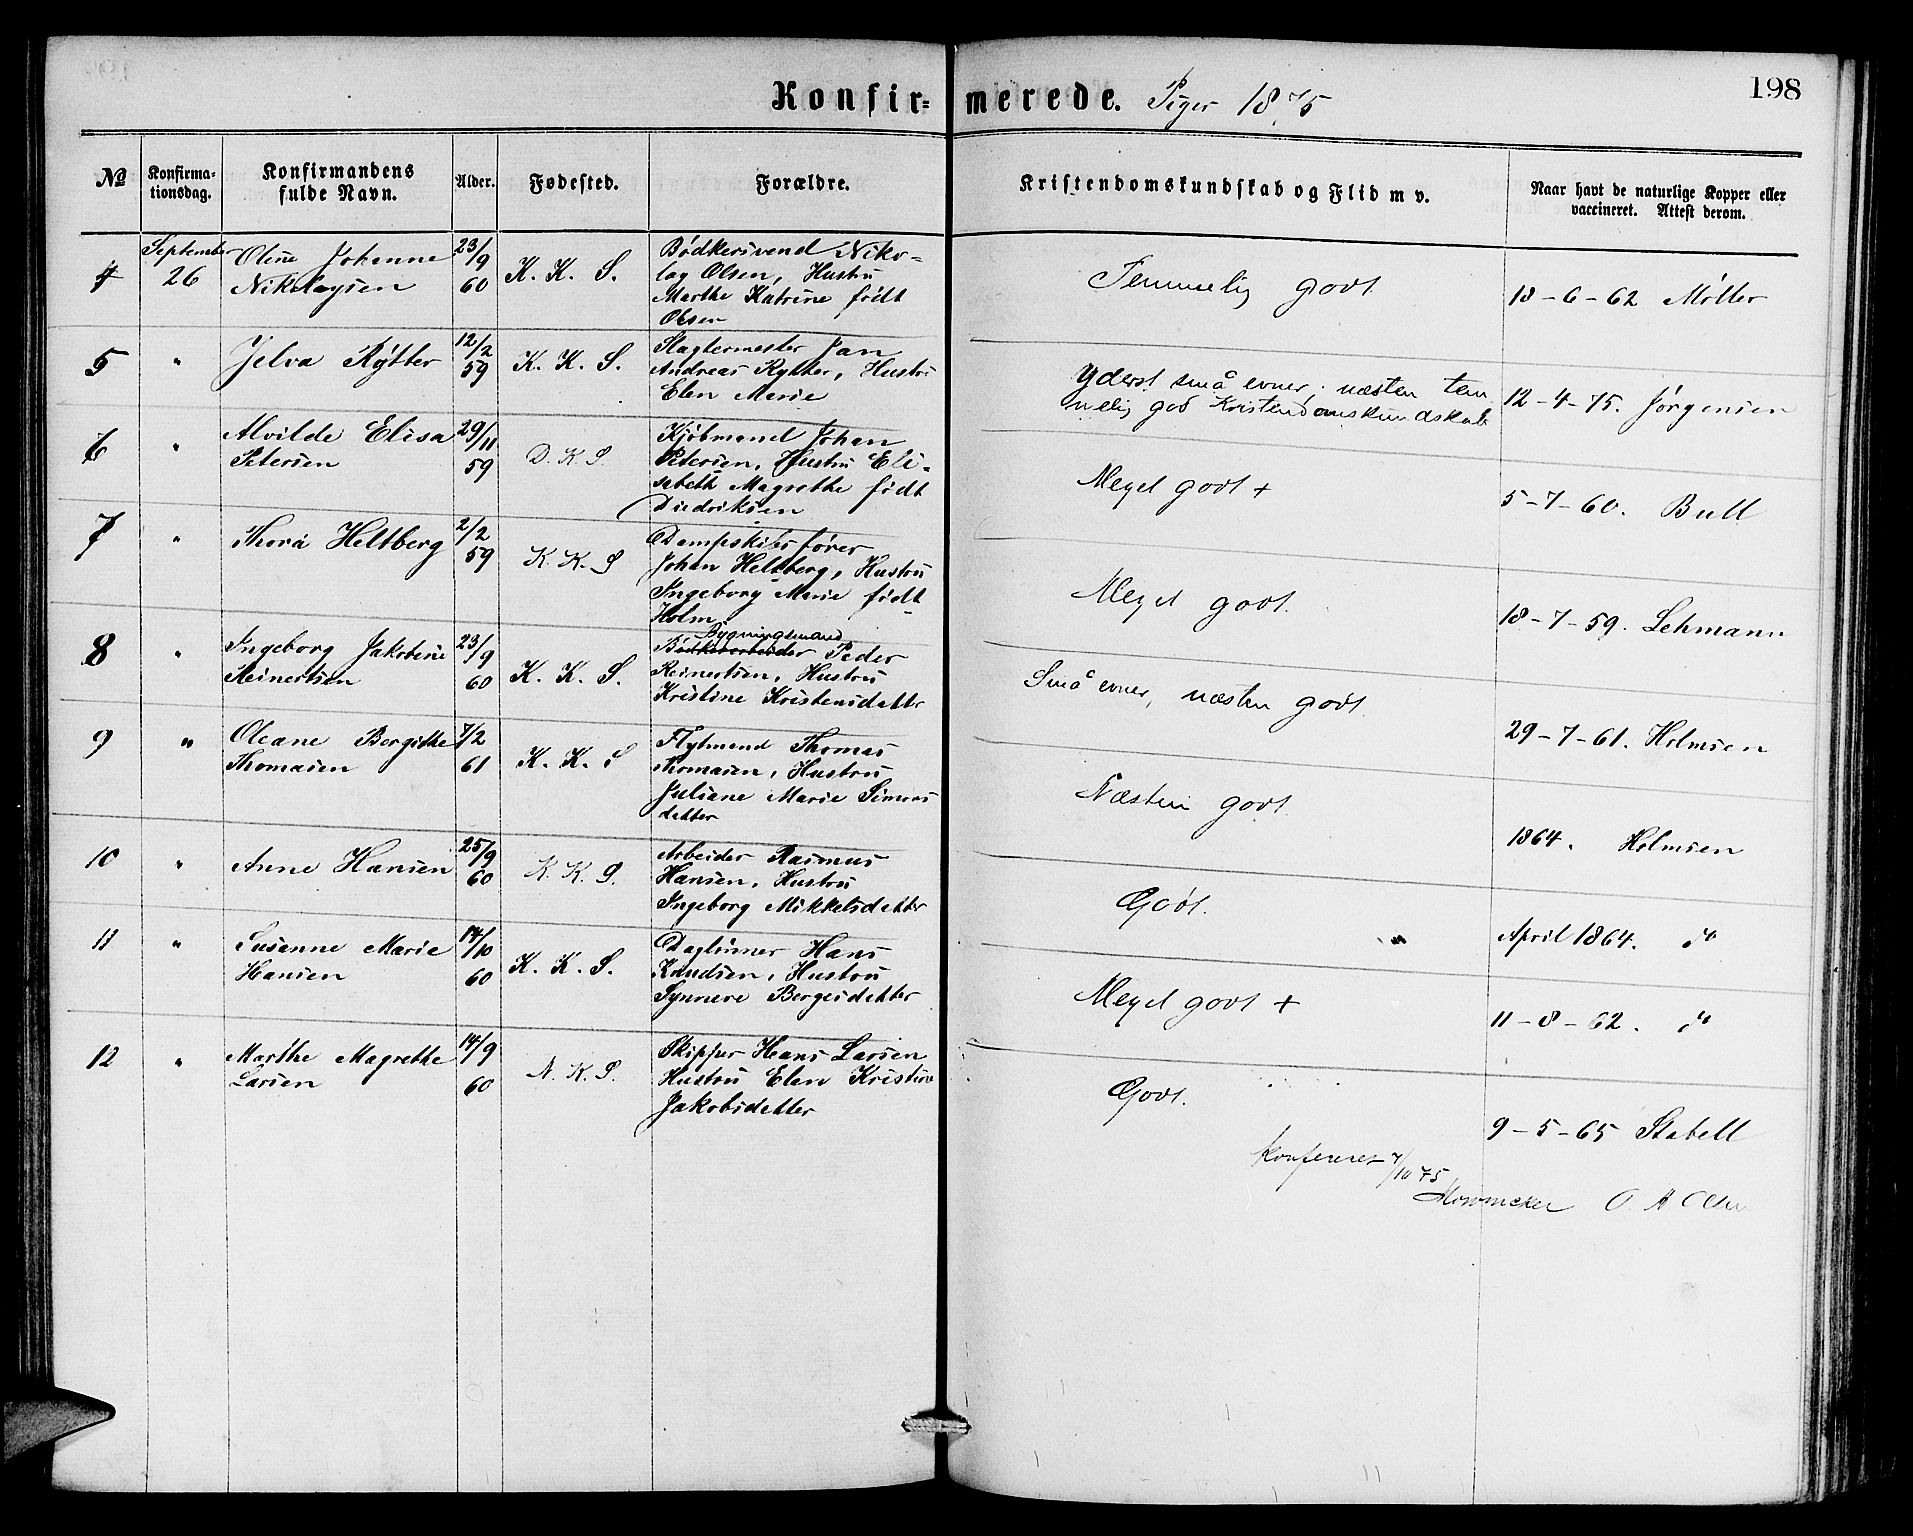 Konfir=merede. Piger 1875
198
№
Konfirma-
tionsdag.
Konfirmandens
fulde Navn.
Alder.
Fødested.
Forældre.
Kristendomskundskab og Flid m v.
Naar havt de naturlige Kopper eller
vaccineret. Attest derom.
4
September
26
Oline Johanne
Nikolaysen
23/9
60
K. K. S.
Bødkersvend Niko-
lay Olsen, Hustru
Marthe Katrine født
Olsen
Temmelig godt
18-6-62 Møller
5
"
Jelva Rytter
12/2
59
K. K. S.
Slagtermester Jan
Andreas Rytter, Hustru
Elen Marie
Yderst små evner. næsten tem
melig god Kristendomskundskab
12-4-75. Jørgensen
6
"
Alvilde Elisa
Petersen
29/11
59
D. K. S.
Kjöbmand Johan
Petersen, Hustru Eli-
sabeth Magrethe født
Diedriksen
Meget godt +
5-7-60. Bull
7
"
Thora Heltberg
2/2
59
K. K. S
Dampskibsfører
Johan Heltberg, Hustru
Ingeborg Marie født
Holm
Meget godt.
18-7-59. Lehmann
8
"
Ingeborg Jakobine
Reinertsen
23/9
60
K. K. S.
Bygningsmand
Bødkerarbeider Peder
Reinertsen, Hustru
Kristine Kristensdatter
Små evner, næsten godt
29-7-61. Holmsen
9
"
Oleane Bergithe
Thomasen
7/2
61
K. K. S
Flytmand Thomas
Thomasen, Hustru
Juliane Marie Simons
datter
Næsten godt.
1864. Holmsen
10
"
Anne Hansen
25/9
60
K. K. S.
Arbeider Rasmus
Hansen, Hustru
Ingeborg Mikkelsdatter
Godt.
"
April 1864. do
11
"
Susanne Marie
Hansen
14/10
60
K. K. S.
Daglönner Hans
Knudsen, Hustru
Synneve Bergesdatter
Meget godt +
11-8-62. do
12
"
Marthe Magrethe
Larsen
14/9
60
N. K. S.
Skipper Hans Larsen
Hustru Elen Kristine
Jakobsdatter
Godt.
9-5-65 Stabell
Konfereret 7/10 75
Mowinckel O. A Olsen